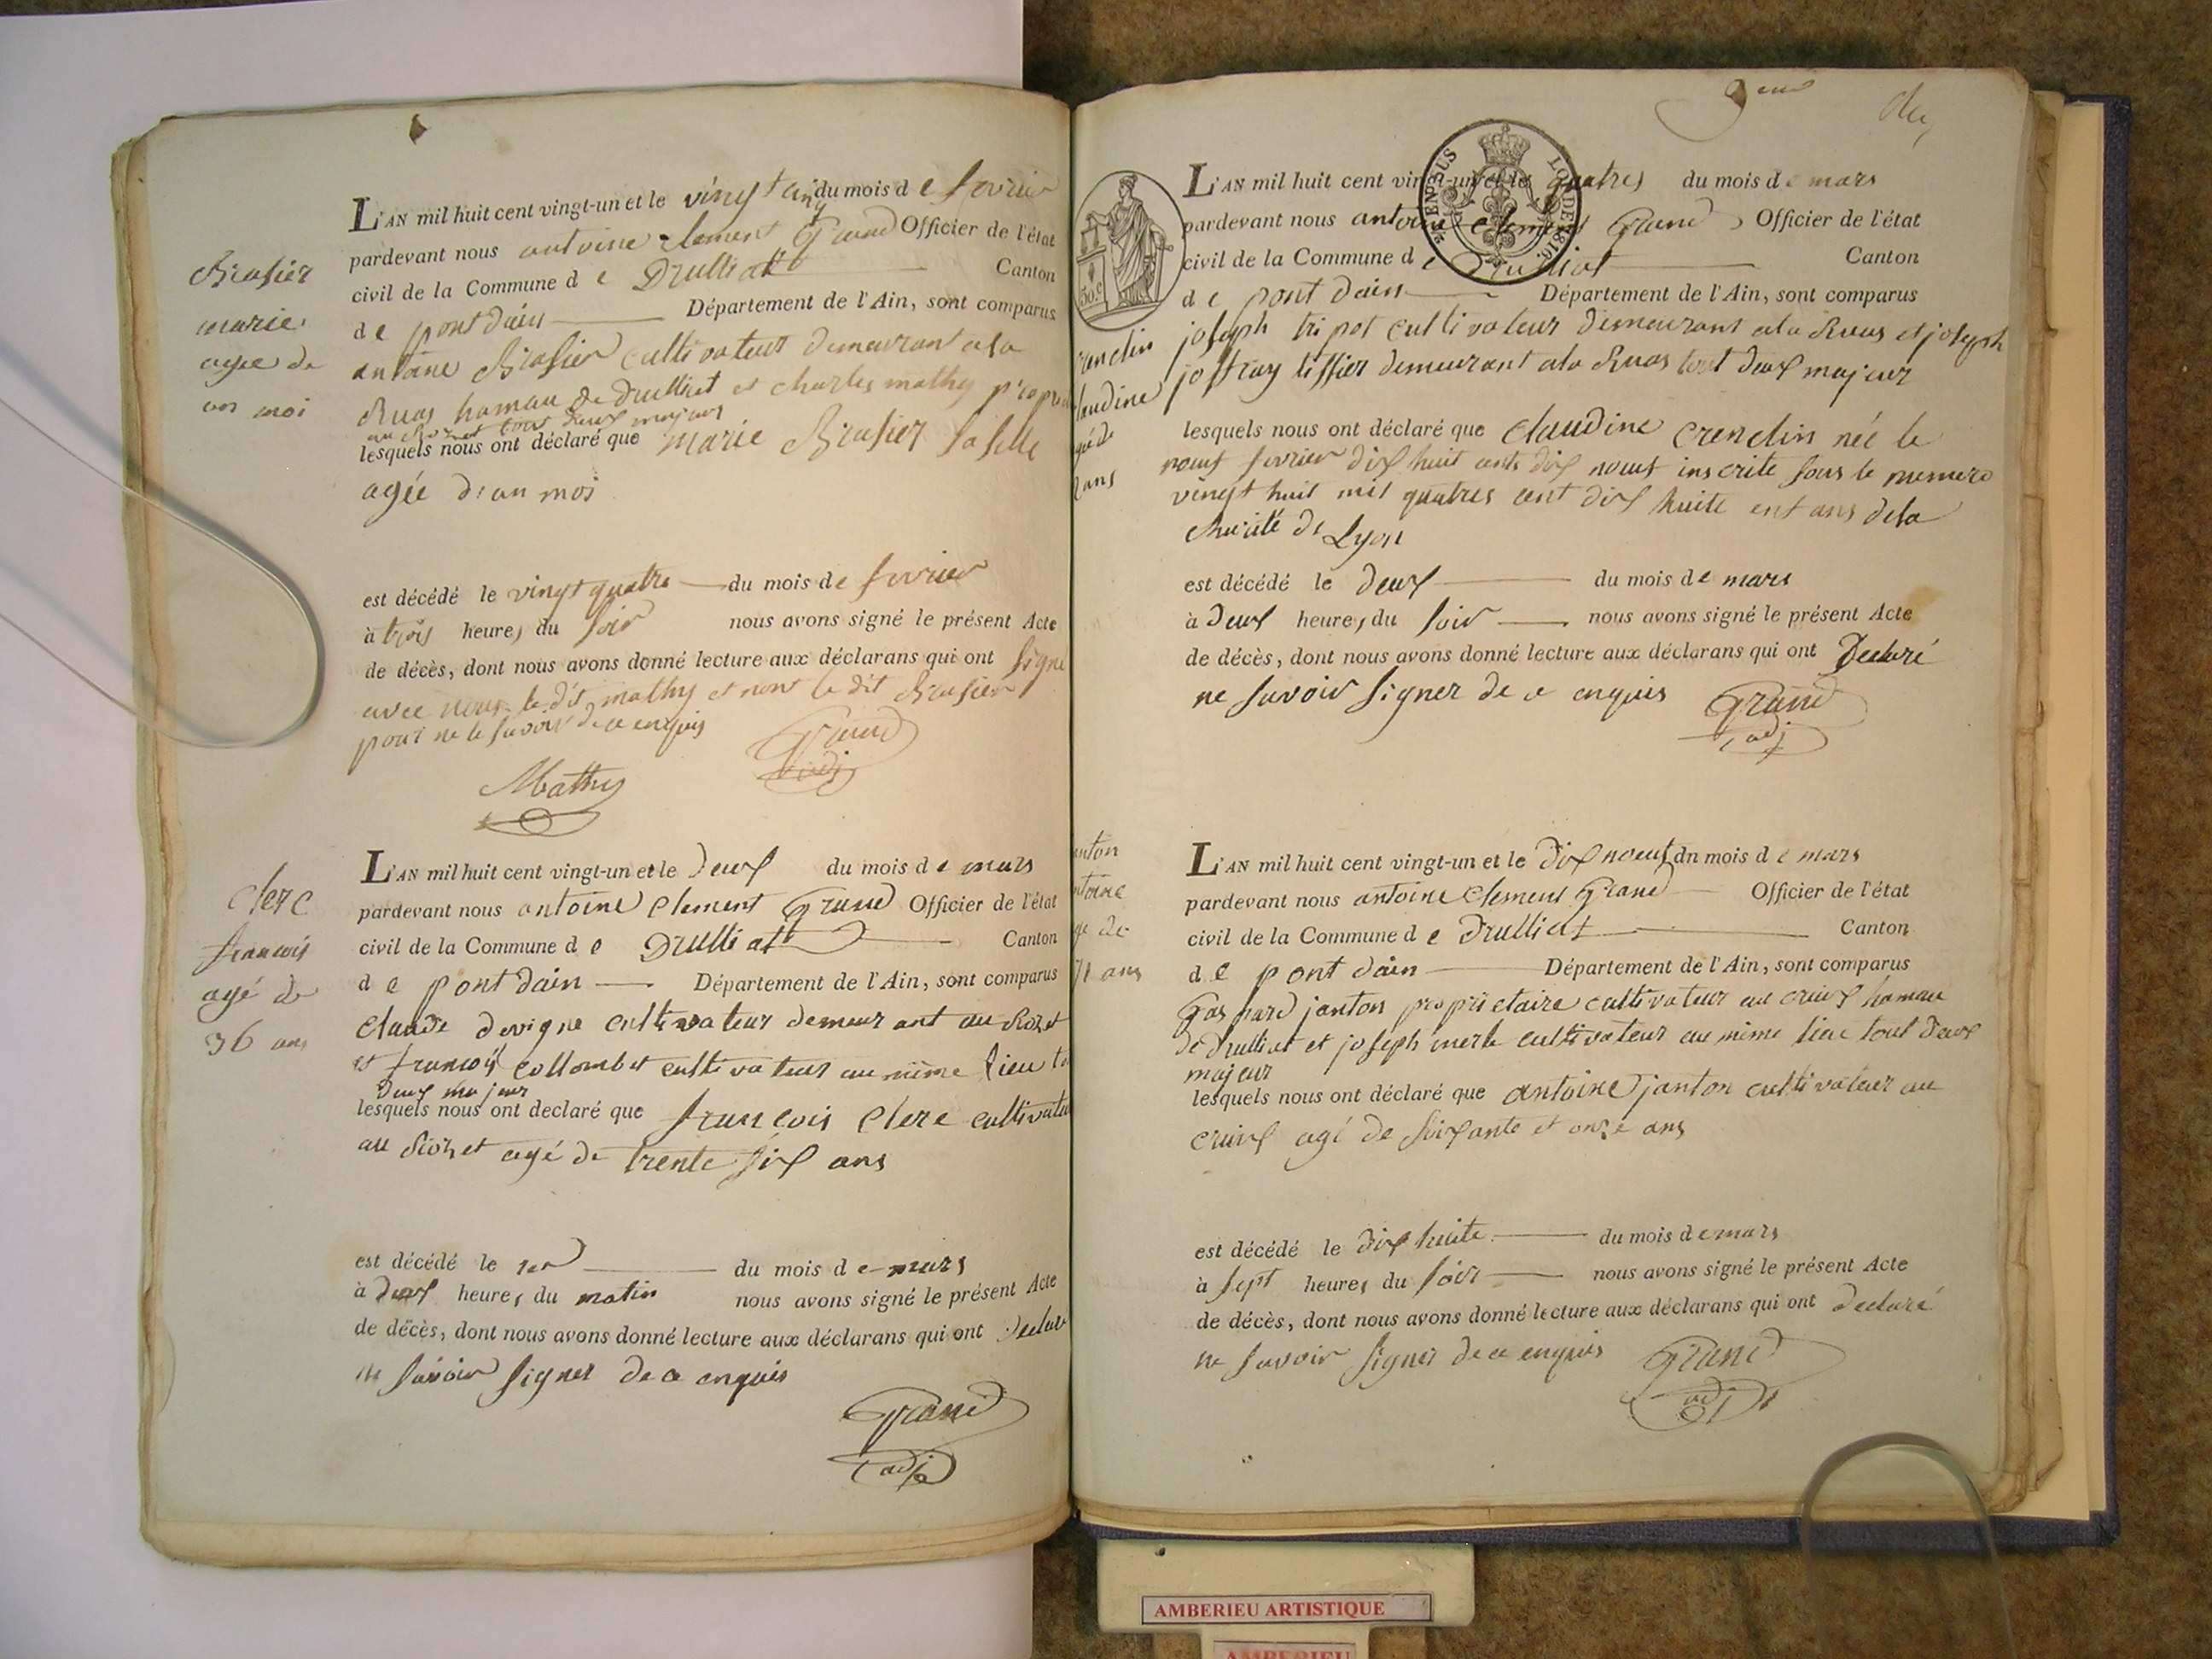 Brasier
marie
agée de
un moi
L'AN mil huit cent vingt-un et le vingt cinq du mois de fevrier
pardevant nous antoine clement Grand Officier de l'état
civil de la Commune de Drulliat Canton
de pont dain Département de l'Ain, sont comparus
antoine Brasier cultivateur demeurant a la
Ruas hamau de drulliat et charles mathy propri
tout deux majeurs
lesquels nous ont déclaré que marie Brasier sa fille
agée d'un moi
est décédé le vingt quatre du mois de fevrier
à trois heures du soir nous avons signé le présent Acte
de décès, dont nous avons donné lecture aux déclarans qui ont signé
avec nous le dit mathy et non le dit Brasier
pour ne le savoir de ce enquis
Grand
adj
Mathy
Clerc
francois
agé de
36 ans
L'AN mil huit cent vingt-un et le deux du mois de mars
pardevant nous antoine clement Grand Officier de l'état
civil de la Commune de Drulliat Canton
de pont dain Département de l'Ain, sont comparus
claude devigne cultivateur demeurant au
et francois collombet cultivateur au mème lieu
deux majeur
lesquels nous ont declaré que francois clerc cultivateu
au agé de trente six ans
est décédé le 1er du mois de mars
à deux heures du matin nous avons signé le présent Acte
de décès, dont nous avons donné lecture aux déclarans qui ont declar
ne savoir signer de ce enquis
Grand
adj
9
TIMBRE 50 c
L'AN mil huit cent vingt-un et le quatres du mois de mars
pardevant nous antoine clement Grand Officier de l'état
civil de la Commune de Drulliat Canton
de pont dain Département de l'Ain, sont comparus
joseph tripot cultivateur demeurant a la Ruas et joseph
joffray tissier demeurant a la Ruas tout deux majeur
renclin
laudine
gé de
2 ans
lesquels nous ont déclaré que claudine crenclin née le
neuf fevrier dix huit cents dix neuf inscrite sous le numero
vingt huit mil quatres cent dix huite enfans dela
charité de Lyon
est décédé le deux du mois de mars
à deux heures du soir nous avons signé le présent Acte
de décès, dont nous avons donné lecture aux déclarans qui ont Declaré
ne savoir signer de ce enquis
Grand
adj
anton
ntoine
ge de
71 ans
L'AN mil huit cent vingt-un et le dix neuf dn mois de mars
pardevant nous antoine clement Grand Officier de l'état
civil de la Commune de Drulliat Canton
de pont dain Département de l'Ain, sont comparus
Gaspard janton propriètaire cultivateur au cruix hamau
de drulliat et joseph merle cultivateur au mème lieu tout deux
majeur
lesquels nous ont déclaré que antoine janton cultivateur au
cruix agé de soixante et onze ans
est décédé le dix huite du mois de mars
à sept heures du soir nous avons signé le présent Acte
de décès, dont nous avons donné lecture aux déclarans qui ont declaré
ne savoir signer de ce enquis
Grand
adj
AMBERIEU ARTISTIQUE
AMBERIEU